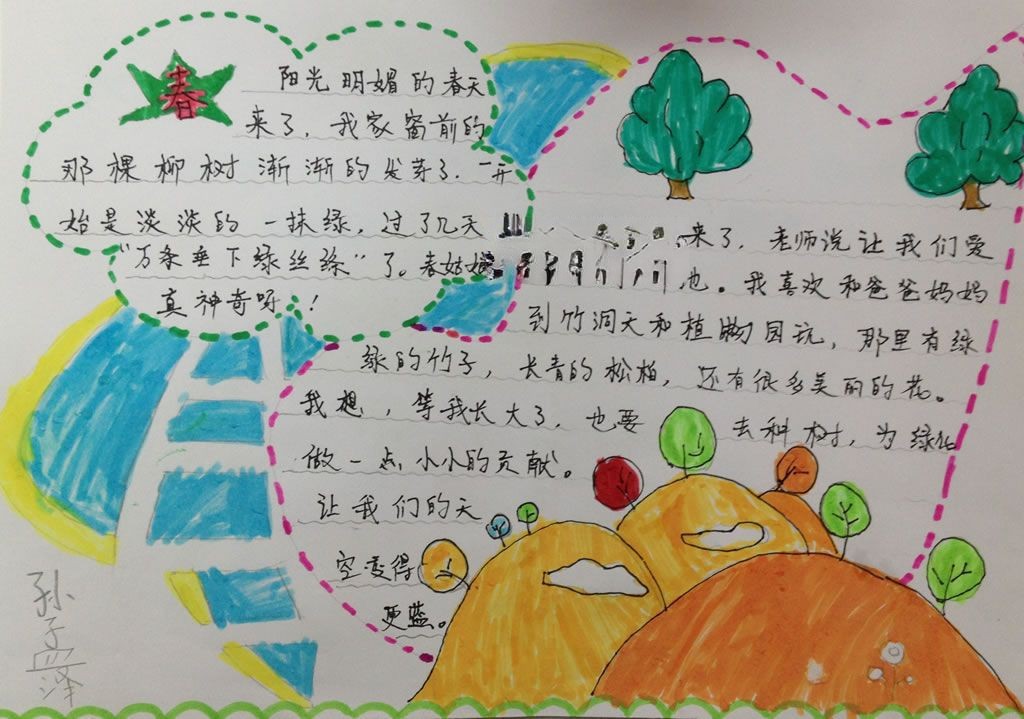 春
阳光明媚的春天
来了，我家窗前的
那棵柳树渐渐的发芽了.一开
始是淡淡的一抹绿，过了几天
“万条垂下绿丝绦”了。春姑娘
真神奇呀！
来了，老师说让我们爱
也。我喜欢和爸爸妈妈
到竹洞天和植物园玩，那里有绿
绿的竹子，长青的松柏，还有很多美丽的花。
我想，等我长大了，也要去种树，为绿化
做一点小小的贡献。
让我们的天
空变得
更蓝。
孙子泽